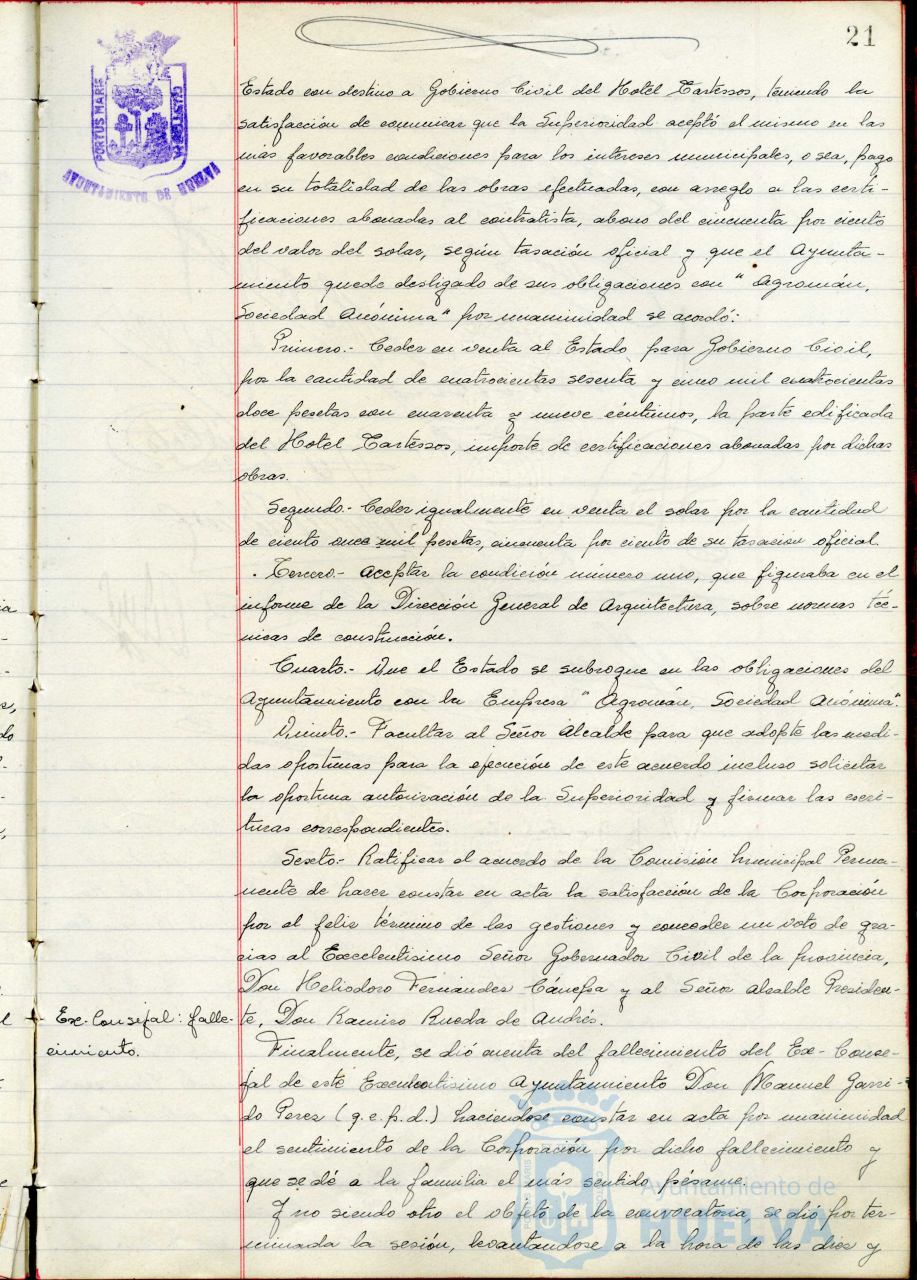 21
PORTUS MARIS
CUSTODIA
AYUNTAMIENTO DE HUELVA
Estado con destino a Gobierno Civil del Hotel Tartessos, teniendo la
satisfacción de comunicar que la Superioridad aceptó el mismo en las
más favorables condiciones para los intereses municipales, o sea, pago
en su totalidad de las obras efectuadas, con arreglo a las certi-
ficaciones abonadas al contratista, abono del cincuenta por ciento
del valor del solar, según tasación oficial y que el Ayunta-
miento quede desligado de sus obligaciones con "Agromán,
Sociedad Anónima" por unanimidad se acordó:
Primero.- Ceder en venta al Estado para Gobierno Civil,
por la cantidad de cuatrocientas sesenta y cinco mil cuatrocientas
doce pesetas con cuarenta y nueve céntimos, la parte edificada
del Hotel Tartessos, importe de certificaciones abonadas por dichas
obras.
Segundo.- Ceder igualmente en venta el solar por la cantidad
de ciento once mil pesetas, cincuenta por ciento de su tasación oficial.
Tercero.- Aceptar la condición número uno, que figuraba en el
informe de la Dirección General de Arquitectura, sobre normas téc-
nicas de construcción.
Cuarto.- Que el Estado se subrogue en las obligaciones del
Ayuntamiento con la Empresa "Agromán, Sociedad Anónima".
Quinto.- Facultar al Señor Alcalde para que adopte las medi-
das oportunas para la ejecución de este acuerdo incluso solicitar
la oportuna autorización de la Superioridad y firmar las escri-
turas correspondientes.
Sexto.- Ratificar el acuerdo de la Comisión Municipal Perma-
nente de hacer constar en acta la satisfacción de la Corporación
por el feliz término de las gestiones y conceder un voto de gra-
cias al Excelentisimo Señor Gobernador Civil de la provincia,
Don Heliodoro Fernandez Cánepa y al Señor Alcalde Presiden-
te, Don Ramiro Rueda de Andrés.
Ex-Consejal: falle-
cimiento.
Finalmente, se dió cuenta del fallecimiento del Ex-Conce-
jal de este Excelentisimo Ayuntamiento Don Manuel Garri-
do Perez (q.e.p.d.) haciendose constar en acta por unanimidad
el sentimiento de la Corporación por dicho fallecimiento y
que se dé a la familia el más sentido pésame.
Y no siendo otro el objeto de la convocatoria, se dió por ter-
minada la sesión, levantandose a la hora de las diez y
Ayuntamiento de
HUELVA